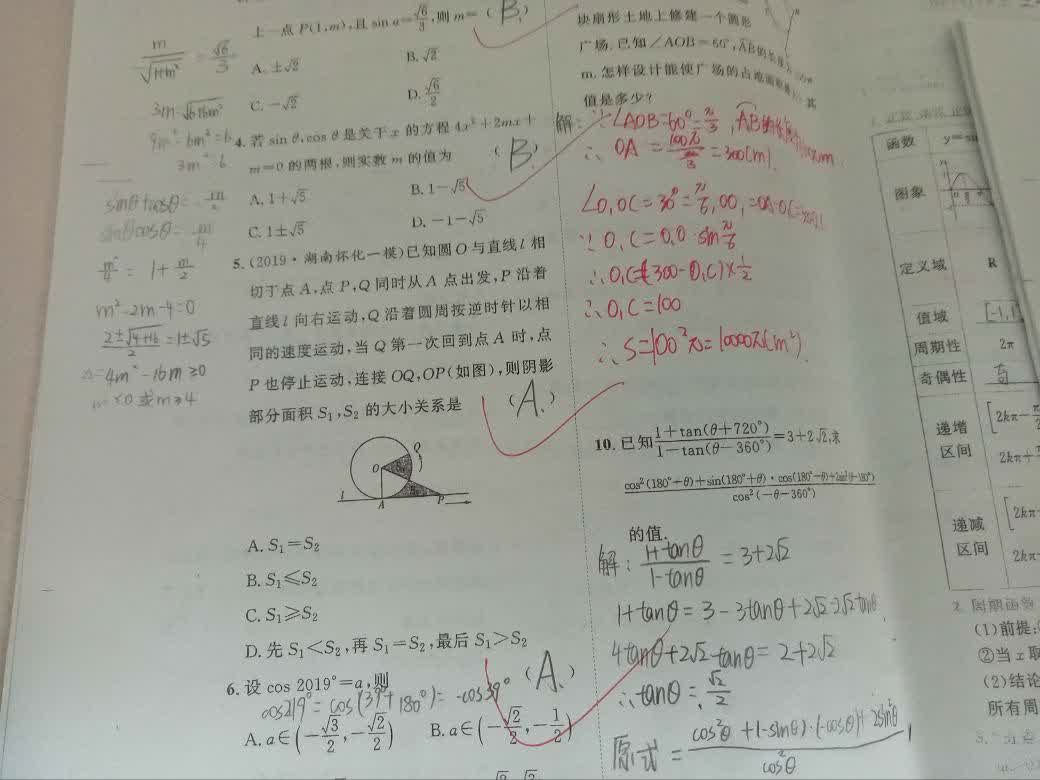 上一点 P(1,m),且 sin α=√6/3,则 m=( B )
A. ±√2
B. √2
C. -√2
D. √6/2
m/√(1+m²) = √6/3
3m=√(6+6m²)
9m²=6m²+6
3m²=6
4. 若 sin θ,cos θ 是关于 x 的方程 4x²+2mx+
m=0 的两根,则实数 m 的值为 ( B )
A. 1+√5
B. 1-√5
C. 1±√5
D. -1-√5
sinθ+cosθ=-m/2
sinθcosθ=m/4
m²/4=1+m/2
m²-2m-4=0
(2±√(4+16))/2=1±√5
△=4m²-16m≥0
m≤0或m≥4
5. (2019·湖南怀化一模)已知圆 O 与直线 l 相
切于点 A,点 P,Q 同时从 A 点出发,P 沿着
直线 l 向右运动,Q 沿着圆周按逆时针以相
同的速度运动,当 Q 第一次回到点 A 时,点
P 也停止运动,连接 OQ,OP(如图),则阴影
部分面积 S₁,S₂ 的大小关系是 ( A. )
O
Q
l
A
P
A. S₁=S₂
B. S₁≤S₂
C. S₁≥S₂
D. 先 S₁<S₂,再 S₁=S₂,最后 S₁>S₂
6. 设 cos 2019°=a,则 ( A. )
cos219°=cos(39°+180°)=-cos39°
A. a∈(-√3/2,-√2/2)
B. a∈(-√2/2,-1/2)
块扇形土地上修建一个圆形
广场.已知∠AOB=60°,AB的长
m.怎样设计能使广场的占地面积
值是多少?
解:∵∠AOB=60°=π/3
∴OA=100π/(π/3)=300(m).
∠O₁OC=30°=π/6,OO₁=OA-O₁C
∵O₁C=O₁O·sinπ/6
∴O₁C=(300-O₁C)×1/2
∴O₁C=100
∴S=100²π=10000π(m²).
10. 已知 (1+tan(θ+720°))/(1-tan(θ-360°))=3+2√2,求
(cos²(180°-θ)+sin(180°+θ)·cos(180°-θ)+2sin²(θ-180°))/cos²(-θ-360°)
的值.
解:(1+tanθ)/(1-tanθ)=3+2√2
1+tanθ=3-3tanθ+2√2-2√2tanθ
4tanθ+2√2tanθ=2+2√2
∴tanθ=√2/2
原式=(cos²θ+(-sinθ)·(-cosθ)+2sin²θ)/cos²θ
函数
图象
定义域
R
值域
[-1,1
周期性
2π
奇偶性
奇
递增
区间
[2kπ-
2kπ+
递减
区间
[2kπ
2kπ
2. 周期函数
(1)前提:
②当 x 取
(2)结论
所有周